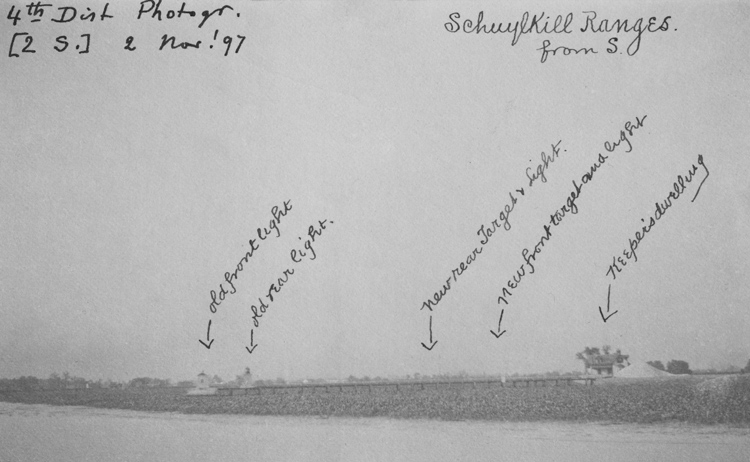 4th Dist Photogr.
[2 S.] 2 Nov! 97
Schuylkill Ranges.
from S.
old front light
old rear light.
New rear Target & light.
New front target and light
Keeper's dwelling